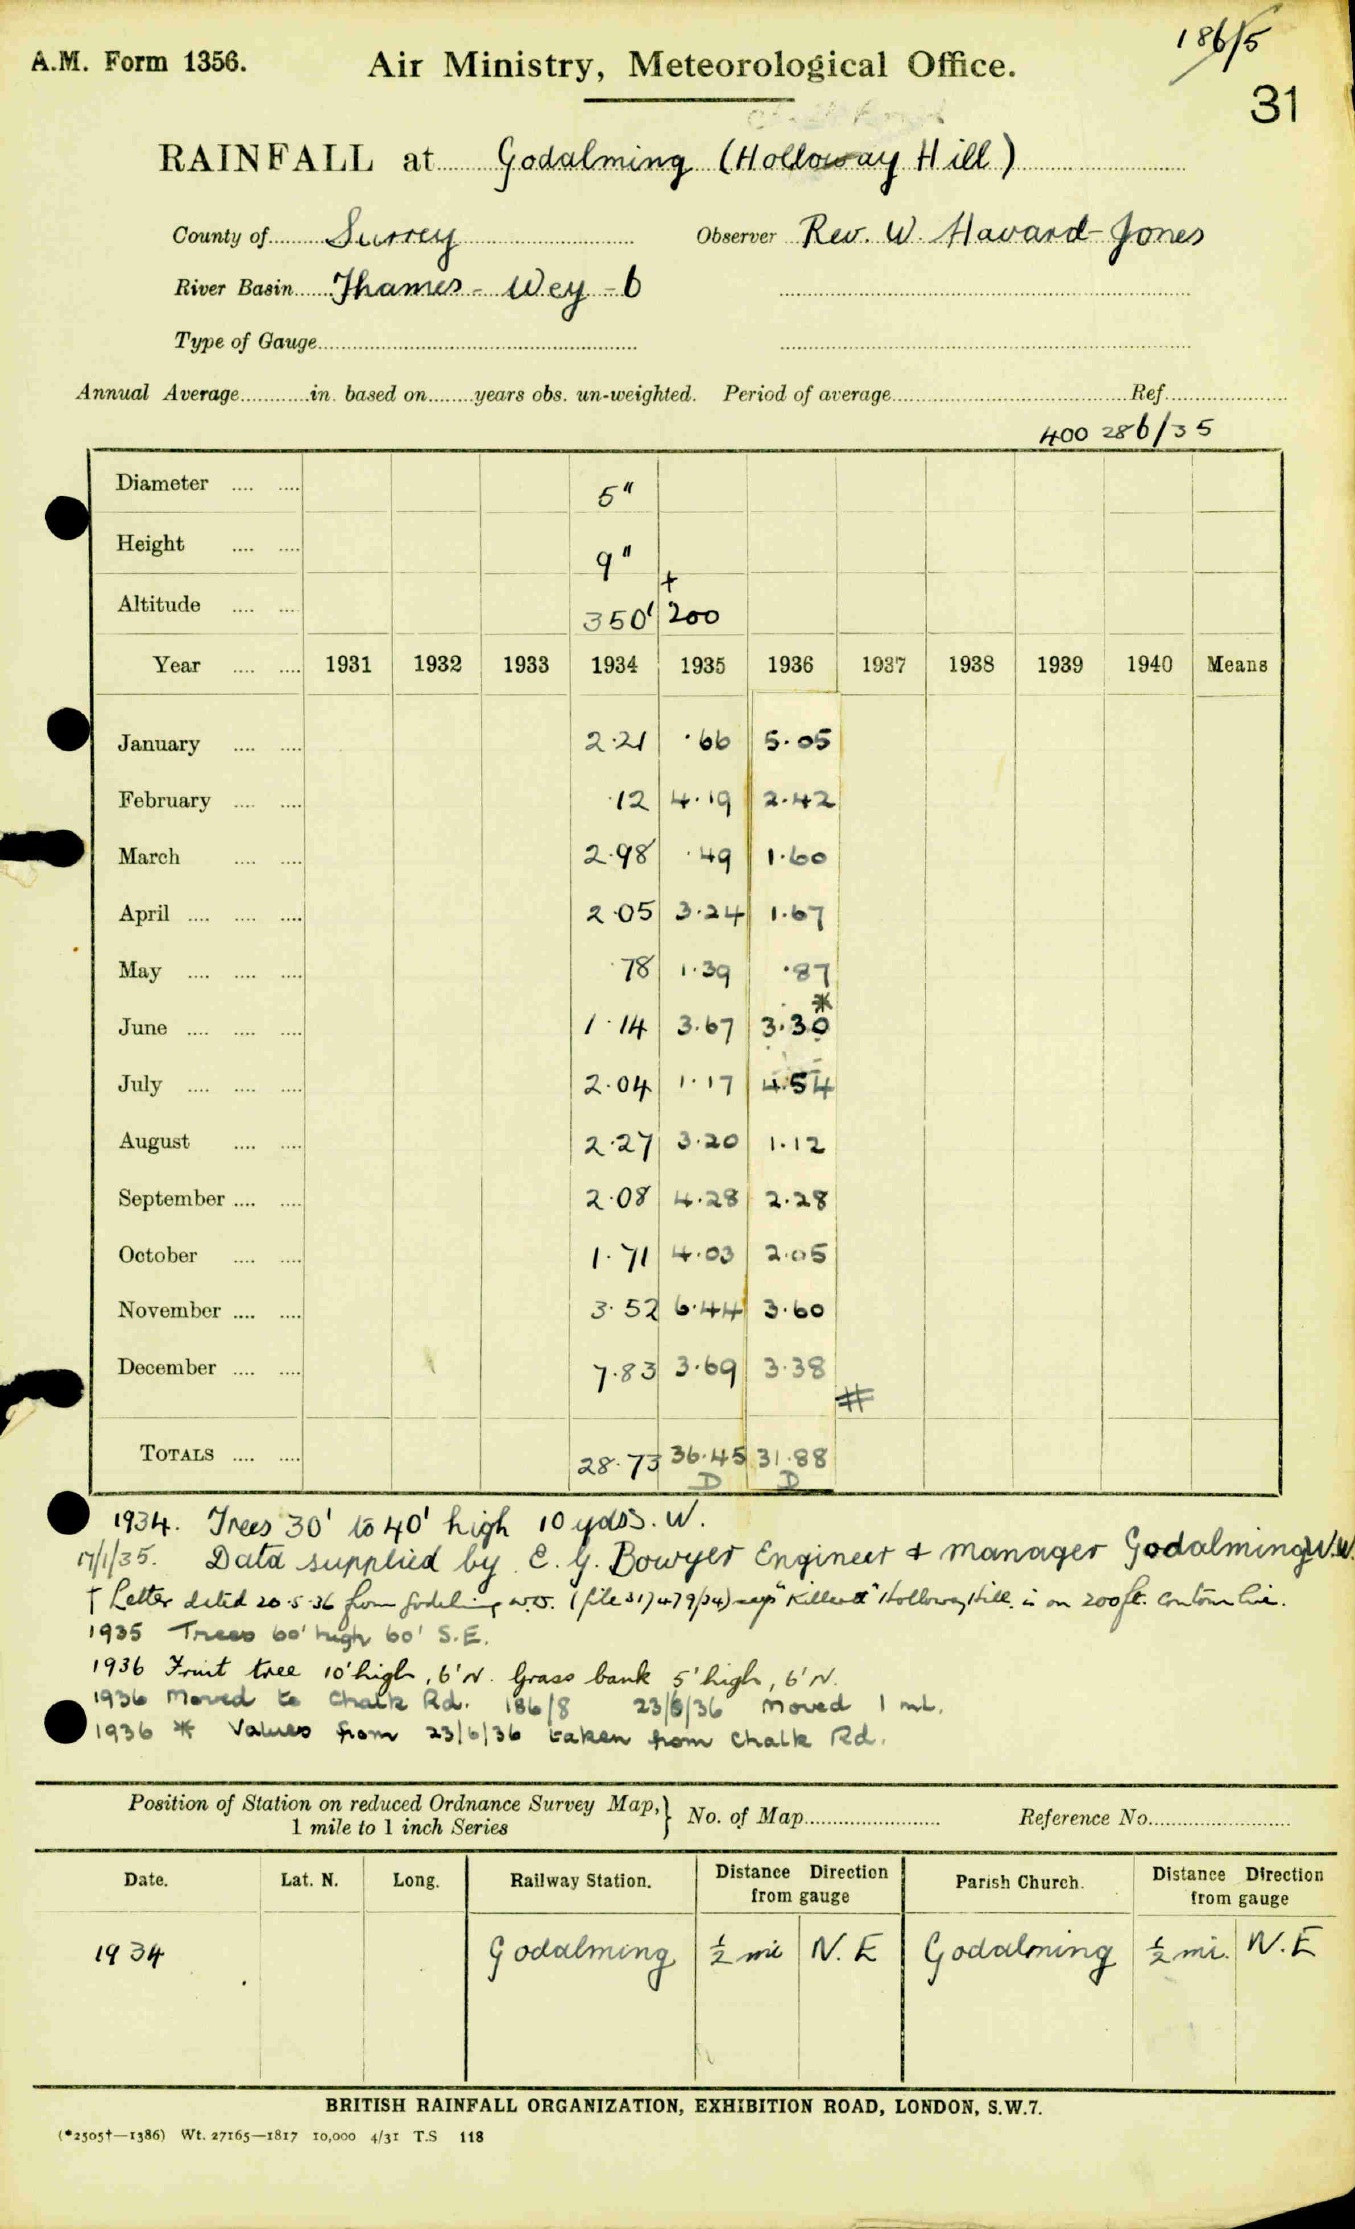 186/5
A.M. Form 1356. Air Ministry, Meteorological Office.
31
RAINFALL at Godalming (Holloway Hill)
County of Surrey Observer Rev. W. Havard-Jones
River Basin Thames - Wey - b
Type of Gauge
Annual Average in. based on years obs. un-weighted. Period of average Ref.
400 286/35
Diameter 5"
Height 9"
Altitude 350' †200
Year 1931 1932 1933 1934 1935 1936 1937 1938 1939 1940 Means
January 2.21 .66 5.05
February .12 4.19 2.42
March 2.98 .49 1.60
April 2.05 3.24 1.67
May .78 1.39 .87
June 1.14 3.67 3.30*
July 2.04 1.17 4.54
August 2.27 3.20 1.12
September 2.08 4.28 2.28
October 1.71 4.03 2.05
November 3.52 6.44 3.60
December 7.83 3.69 3.38
#
TOTALS 28.73 36.45 31.88
D D
1934. Trees 30' to 40' high 10 yds S.W.
17/1/35. Data supplied by E. G. Bowyer Engineer & manager Godalming W.W.
† Letter dated 20.5.36 from Godalming says Holloway Hill. is on 200 ft. contour line.
1935 Trees 60' high 60' S.E.
1936 Fruit tree 10' high, 6' N. Grass bank 5' high, 6' N.
1936 Moved to Chalk Rd. 186/8 23/6/36 Moved 1 ml.
1936 * Values from 23/6/36 taken from Chalk Rd.
Position of Station on reduced Ordnance Survey Map,} No. of Map Reference No.
1 mile to 1 inch Series
Date. Lat. N. Long. Railway Station. Distance Direction from gauge Parish Church. Distance Direction from gauge
1934 Godalming ½ mi N.E Godalming ½ mi. N.E
BRITISH RAINFALL ORGANIZATION, EXHIBITION ROAD, LONDON, S.W.7.
(*2505†—1386) Wt. 27165—1817 10,000 4/31 T.S 118